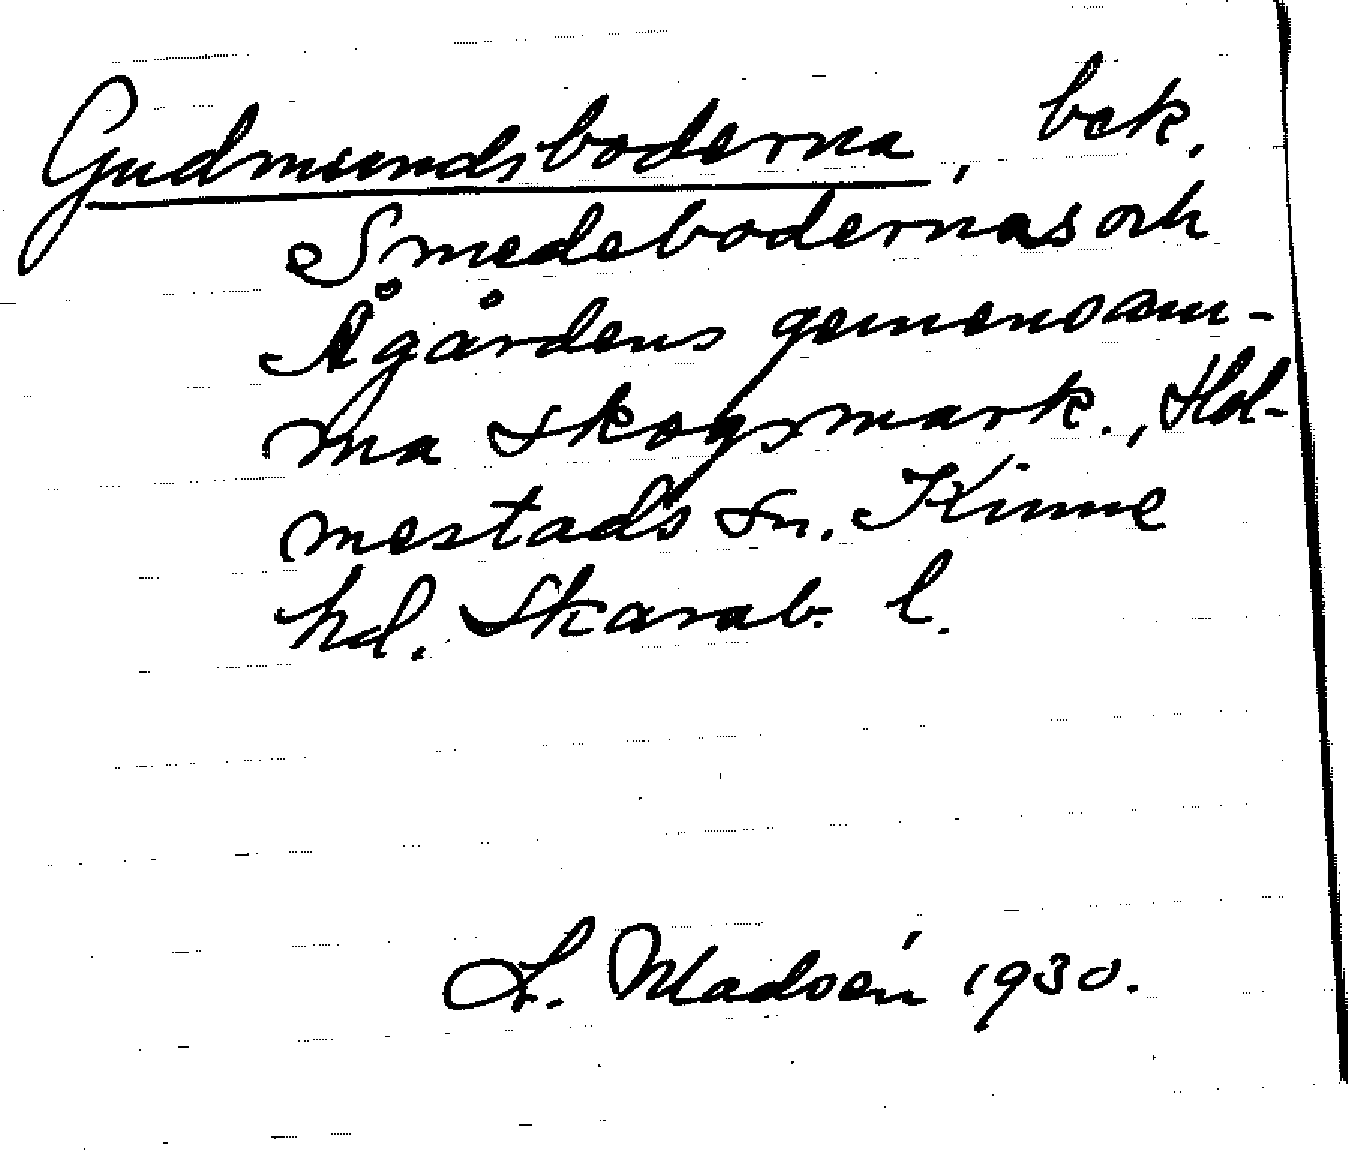 Gudmundsboderna, bek.
Smedebodernas och
Ågårdens gemensam-
ma skogsmark., Hol-
mestads sn. Kinne
hd. Skarab. l.
L. Madsén 1930.